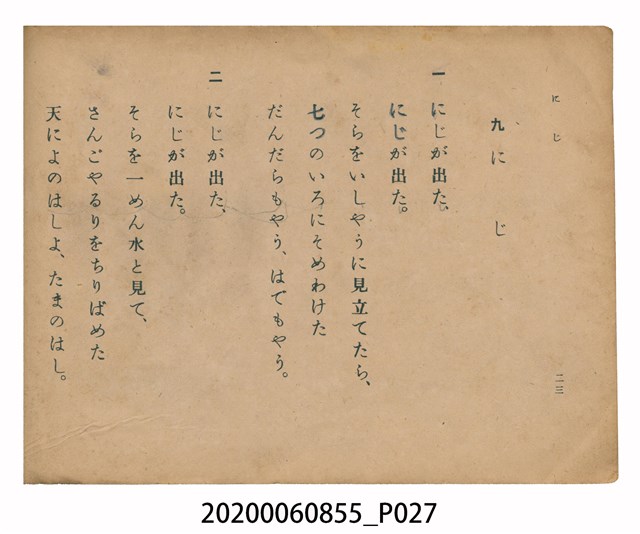 にじ
九 にじ
一 にじが出た、
にじが出た。
そらをいしやうに見立てたら、
七つのいろにそめわけた
だんだらもやう、はでもやう。
二 にじが出た、
にじが出た。
そらを一めん水と見て、
さんごやるりをちりばめた
天によのはしよ、たまのはし。
二三
20200060855_P027